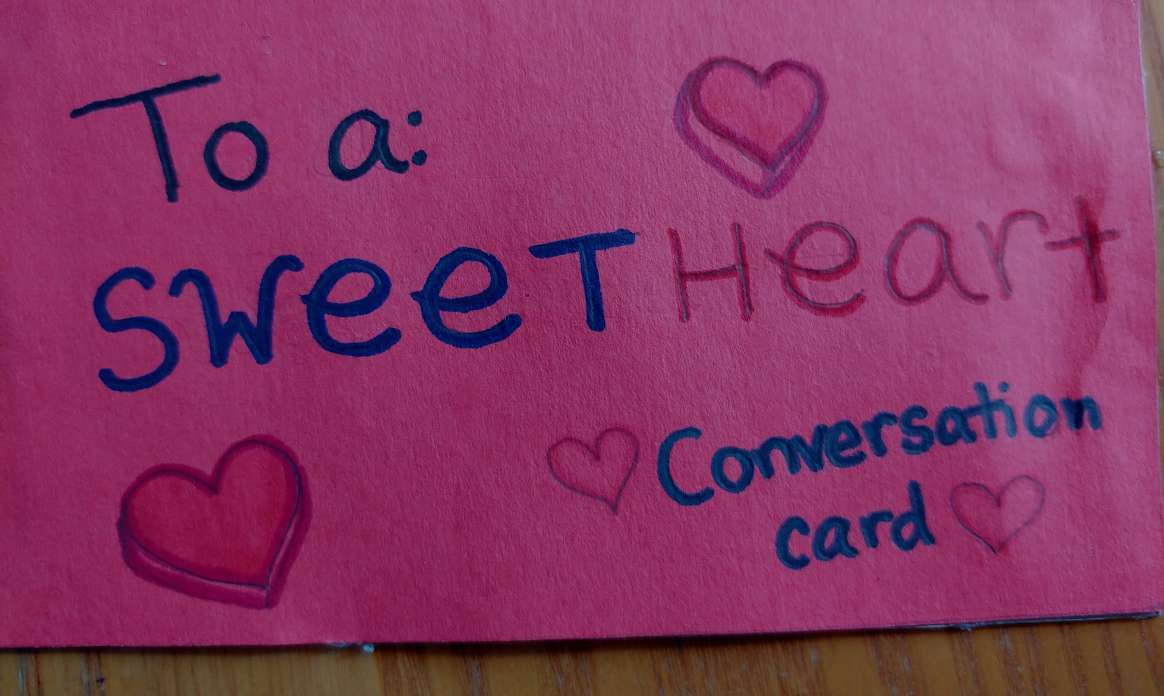 To a:
SweeTHeart
Conversation
card